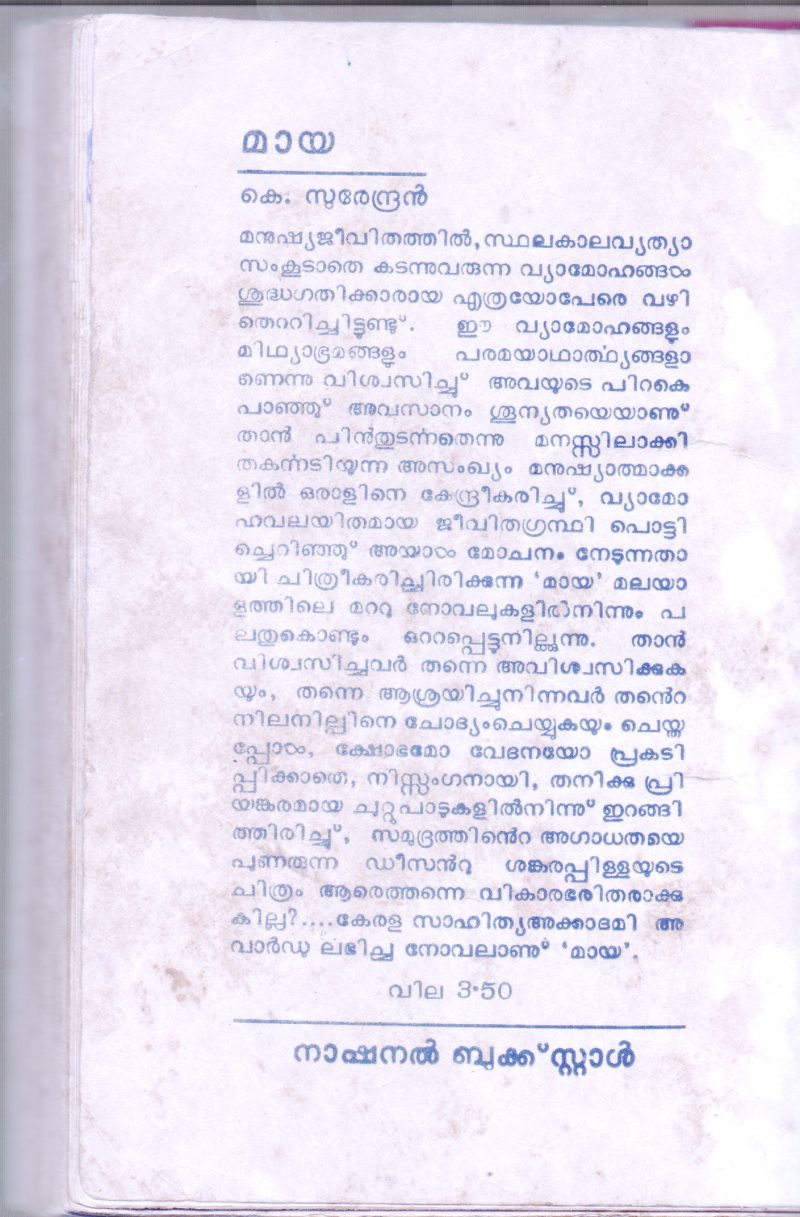 മായ
കെ. സുരേന്ദ്രൻ
മനുഷ്യജീവിതത്തിൽ, സ്ഥലകാലവ്യത്യാ
സംകൂടാതെ കടന്നുവരുന്ന വ്യാമോഹങ്ങൾ
ശുദ്ധഗതിക്കാരായ എത്രയോപേരെ വഴി
തെററിച്ചിട്ടുണ്ടു്. ഈ വ്യാമോഹങ്ങളും
മിഥ്യാഭ്രമങ്ങളും പരമയാഥാർത്ഥ്യങ്ങളാ
ണെന്നു വിശ്വസിച്ചു് അവയുടെ പിറകെ
പാഞ്ഞു് അവസാനം ശൂന്യതയെയാണു്
താൻ പിൻതുടർന്നതെന്നു മനസ്സിലാക്കി
തകർന്നടിയുന്ന അസംഖ്യം മനുഷ്യാത്മാക്ക
ളിൽ ഒരാളിനെ കേന്ദ്രീകരിച്ചു്, വ്യാമോ
ഹവലയിതമായ ജീവിതഗ്രന്ഥി പൊട്ടി
ച്ചെറിഞ്ഞു് അയാൾ മോചനം നേടുന്നതാ
യി ചിത്രീകരിച്ചിരിക്കുന്ന ‘മായ’ മലയാ
ളത്തിലെ മററു നോവലുകളിൽനിന്നും പ
ലതുകൊണ്ടും ഒററപ്പെട്ടുനില്ക്കുന്നു. താൻ
വിശ്വസിച്ചവർ തന്നെ അവിശ്വസിക്കുക
യും, തന്നെ ആശ്രയിച്ചുനിന്നവർ തൻെറ
നിലനില്പിനെ ചോദ്യംചെയ്യുകയും ചെയ്ത
പ്പോൾ, ക്ഷോഭമോ വേദനയോ പ്രകടി
പ്പിക്കാതെ, നിസ്സംഗനായി, തനിക്കു പ്രി
യങ്കരമായ ചുറ്റുപാടുകളിൽനിന്നു് ഇറങ്ങി
ത്തിരിച്ചു്, സമുദ്രത്തിൻെറ അഗാധതയെ
പുണരുന്ന ഡീസൻറു ശങ്കരപ്പിള്ളയുടെ
ചിത്രം ആരെത്തന്നെ വികാരഭരിതരാക്കു
കില്ല?....കേരള സാഹിത്യഅക്കാദമി അ
വാർഡു ലഭിച്ച നോവലാണു് ‘മായ’.
വില 3·50
നാഷനൽ ബുക്ക് സ്റ്റാൾ